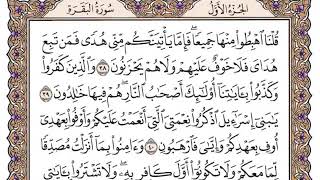 الجزء الأول سورة البقرة
قُلْنَا ٱهْبِطُوا۟ مِنْهَا جَمِيعًا فَإِمَّا يَأْتِيَنَّكُم مِّنِّى هُدًى فَمَن تَبِعَ
هُدَاىَ فَلَا خَوْفٌ عَلَيْهِمْ وَلَا هُمْ يَحْزَنُونَ ٣٨ وَٱلَّذِينَ كَفَرُوا۟
وَكَذَّبُوا۟ بِـَٔايَٰتِنَآ أُو۟لَٰٓئِكَ أَصْحَٰبُ ٱلنَّارِ هُمْ فِيهَا خَٰلِدُونَ ٣٩
يَٰبَنِىٓ إِسْرَٰٓءِيلَ ٱذْكُرُوا۟ نِعْمَتِىَ ٱلَّتِىٓ أَنْعَمْتُ عَلَيْكُمْ وَأَوْفُوا۟ بِعَهْدِىٓ
أُوفِ بِعَهْدِكُمْ وَإِيَّٰىَ فَٱرْهَبُونِ ٤٠ وَءَامِنُوا۟ بِمَآ أَنزَلْتُ مُصَدِّقًا
لِّمَا مَعَكُمْ وَلَا تَكُونُوٓا۟ أَوَّلَ كَافِرٍۭ بِهِۦ وَلَا تَشْتَرُوا۟ بِـَٔايَٰتِى